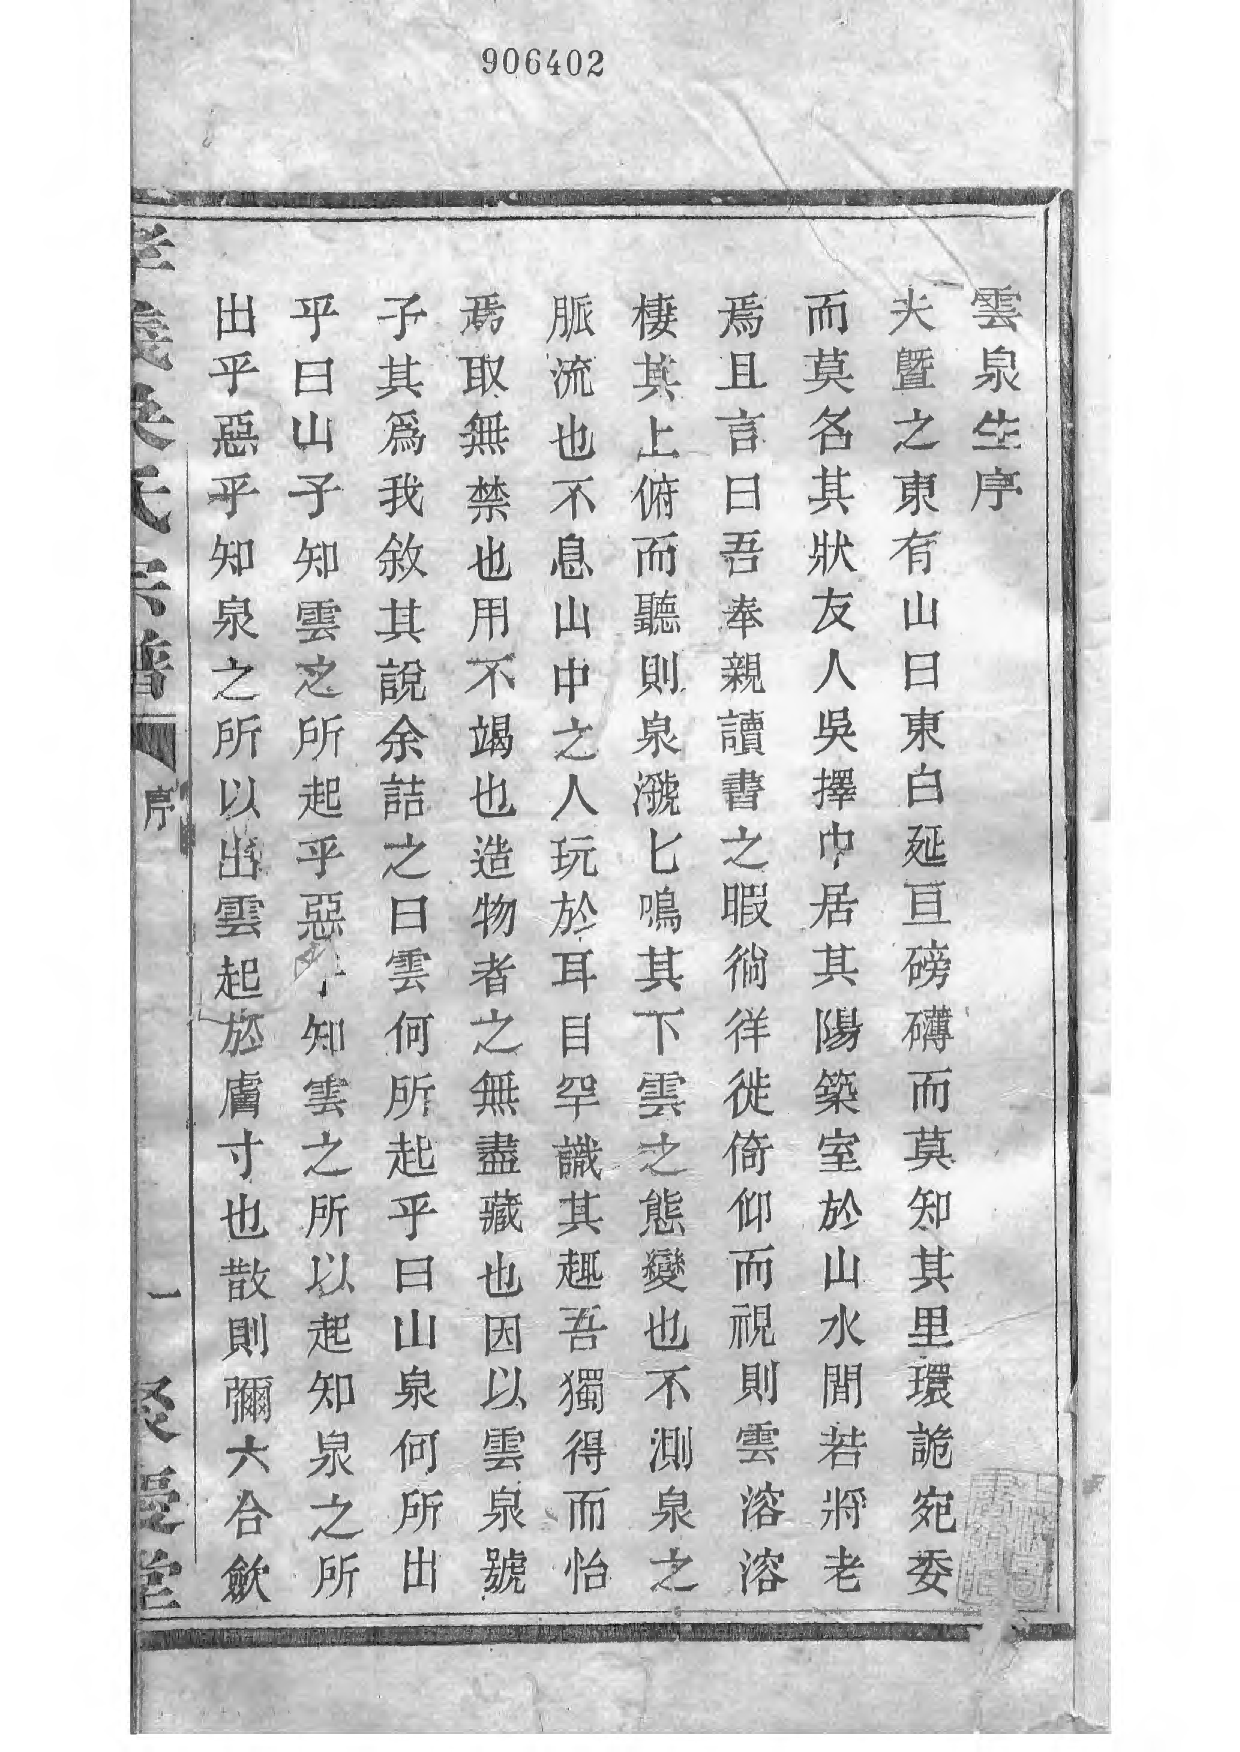 906402
雲泉生序
夫暨之東有山曰東白延亘磅礴而莫知其里環詭宛委
而莫名其狀友人吳擇中居其陽築室於山水間若將老
焉且言曰吾奉親讀書之暇徜徉徙倚仰而視則雲溶溶
棲其上俯而聽則泉㶁匕鳴其下雲之態變也不測泉之
脈流也不息山中之人玩於耳目罕識其趣吾獨得而怡
焉取無禁也用不竭也造物者之無盡藏也因以雲泉號
子其爲我敘其說余詰之曰雲何所起乎曰山泉何所出
乎曰山子知雲之所起乎惡乎知雲之所以起知泉之所
出乎惡乎知泉之所以出雲起於膚寸也散則彌六合歛
孝義吳氏宗譜
序
一
聚慶堂